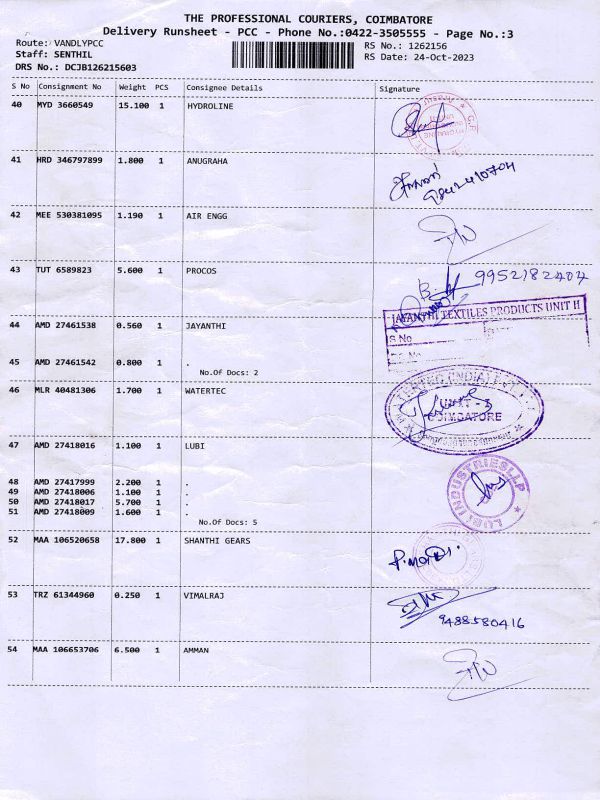 THE PROFESSIONAL COURIERS, COIMBATORE
Delivery Runsheet - PCC - Phone No.:0422-3505555 - Page No.:3
Route: VANDLYPCC RS No.: 1262156
Staff: SENTHIL RS Date: 24-Oct-2023
DRS No.: DCJB126215603
S No Consignment No Weight PCS Consignee Details Signature
40 MYD 3660549 15.100 1 HYDROLINE
41 HRD 346797899 1.800 1 ANUGRAHA
42 MEE 530381095 1.190 1 AIR ENGG
43 TUT 6589823 5.600 1 PROCOS
9952182404
JAYANTHI TEXTILES PRODUCTS UNIT II
44 AMD 27461538 0.560 1 JAYANTHI
S No
45 AMD 27461542 0.800 1 .
No.Of Docs: 2
46 MLR 40481306 1.700 1 WATERTEC
UNIT - I
COIMBATORE
47 AMD 27418016 1.100 1 LUBI
48 AMD 27417999 2.200 1 .
49 AMD 27418006 1.100 1 .
50 AMD 27418017 5.700 1 .
51 AMD 27418009 1.600 1 .
LUBI INDUSTRIES LLP
No.Of Docs: 5
52 MAA 106520658 17.800 1 SHANTHI GEARS
53 TRZ 61344960 0.250 1 VIMALRAJ
9488580416
54 MAA 106653706 6.500 1 AMMAN